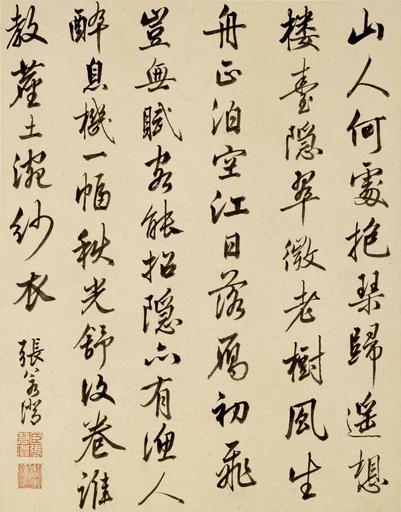 山人何處抱琴歸遙想
樓臺隱翠微老樹風生
舟正泊空江日落鴈初飛
豈無賦客能招隱亦有漁人
醉息機一幅秋光舒復卷誰
教塵土涴紗衣
張若澄